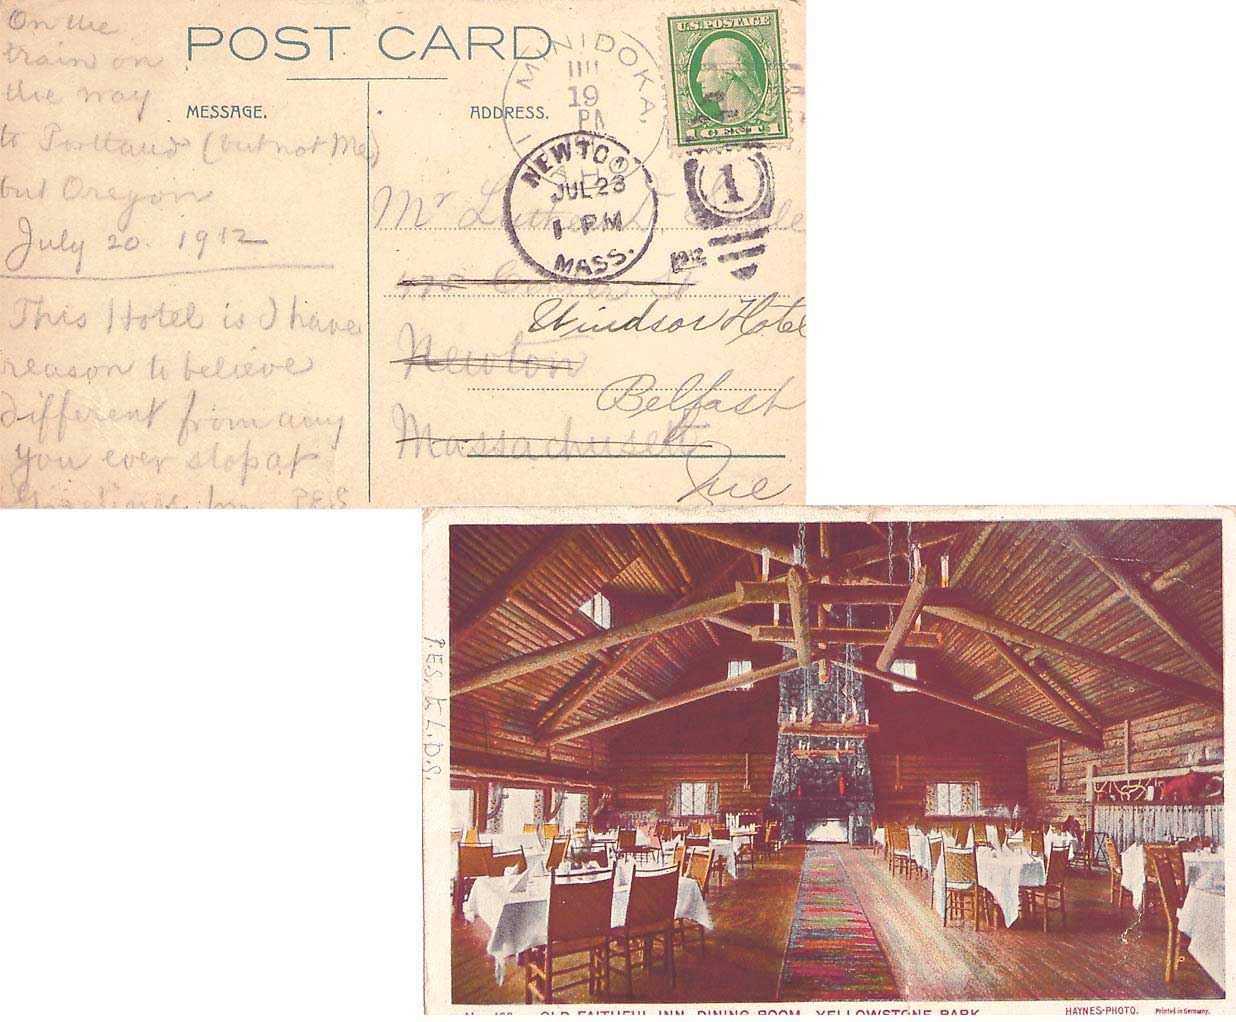 On the
train on
the way
to Portland (but not Me)
but Oregon
July 20. 1912
This Hotel is I have
reason to believe
different from any
you ever stop at
P.E.S.
POST CARD
MESSAGE.
ADDRESS.
MINIDOKA,
1111
19
U.S. POSTAGE
1 CENT 1
NEWTON
JUL 23
1 PM
MASS.
1
1912
Mr Luther D.
478 Center St
Windsor Hotel
Newton
Belfast
Massachusetts
Me
P.E.S. to L.D.S.
OLD FAITHFUL INN, DINING ROOM, YELLOWSTONE PARK
HAYNES-PHOTO.
Printed in Germany.